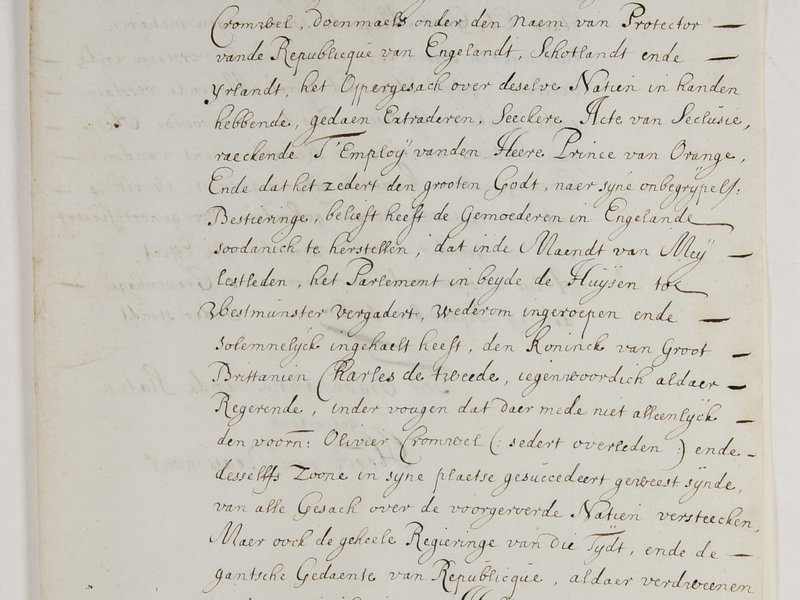 Cromwel, doenmaels onder den Naem van Protector —
vande Republicque van Engelandt, Schotlandt ende —
Yrlandt, het Oppergesach over deselve Natien in handen
hebbende, gedaen Extraderen, Seeckere Acte van Seclusie,
raeckende T'Employ vanden Heere Prince van Orange,
Ende dat het zedert den grooten Godt, naer syne onbegrypels:
Bestieringe, belieft heeft de Gemoederen in Engelande
soodanich te herstellen, dat inde Maendt van Meÿ —
lestleden, het Parlement in beyde de Huÿsen tot
Westmunster vergadert, wederom ingeroepen ende —
solemnelÿck ingehaelt heeft, den Koninck van Groot —
Brittanien Charles de tweede, iegenwoordich aldaer —
Regerende, inder vougen dat daer mede niet alleenlÿck —
den voorn: Olivier Cromwel (: sedert overleden :) ende -
desselffs Zoone in syne plaetse gesuccedeert geweest sÿnde,
van alle Gesach over de voorgeroerde Natien versteecken,
Maer oock de geheele Regieringe van die Tÿdt, ende de —
gantsche Gedaente van Republicque, aldaer verdweenen